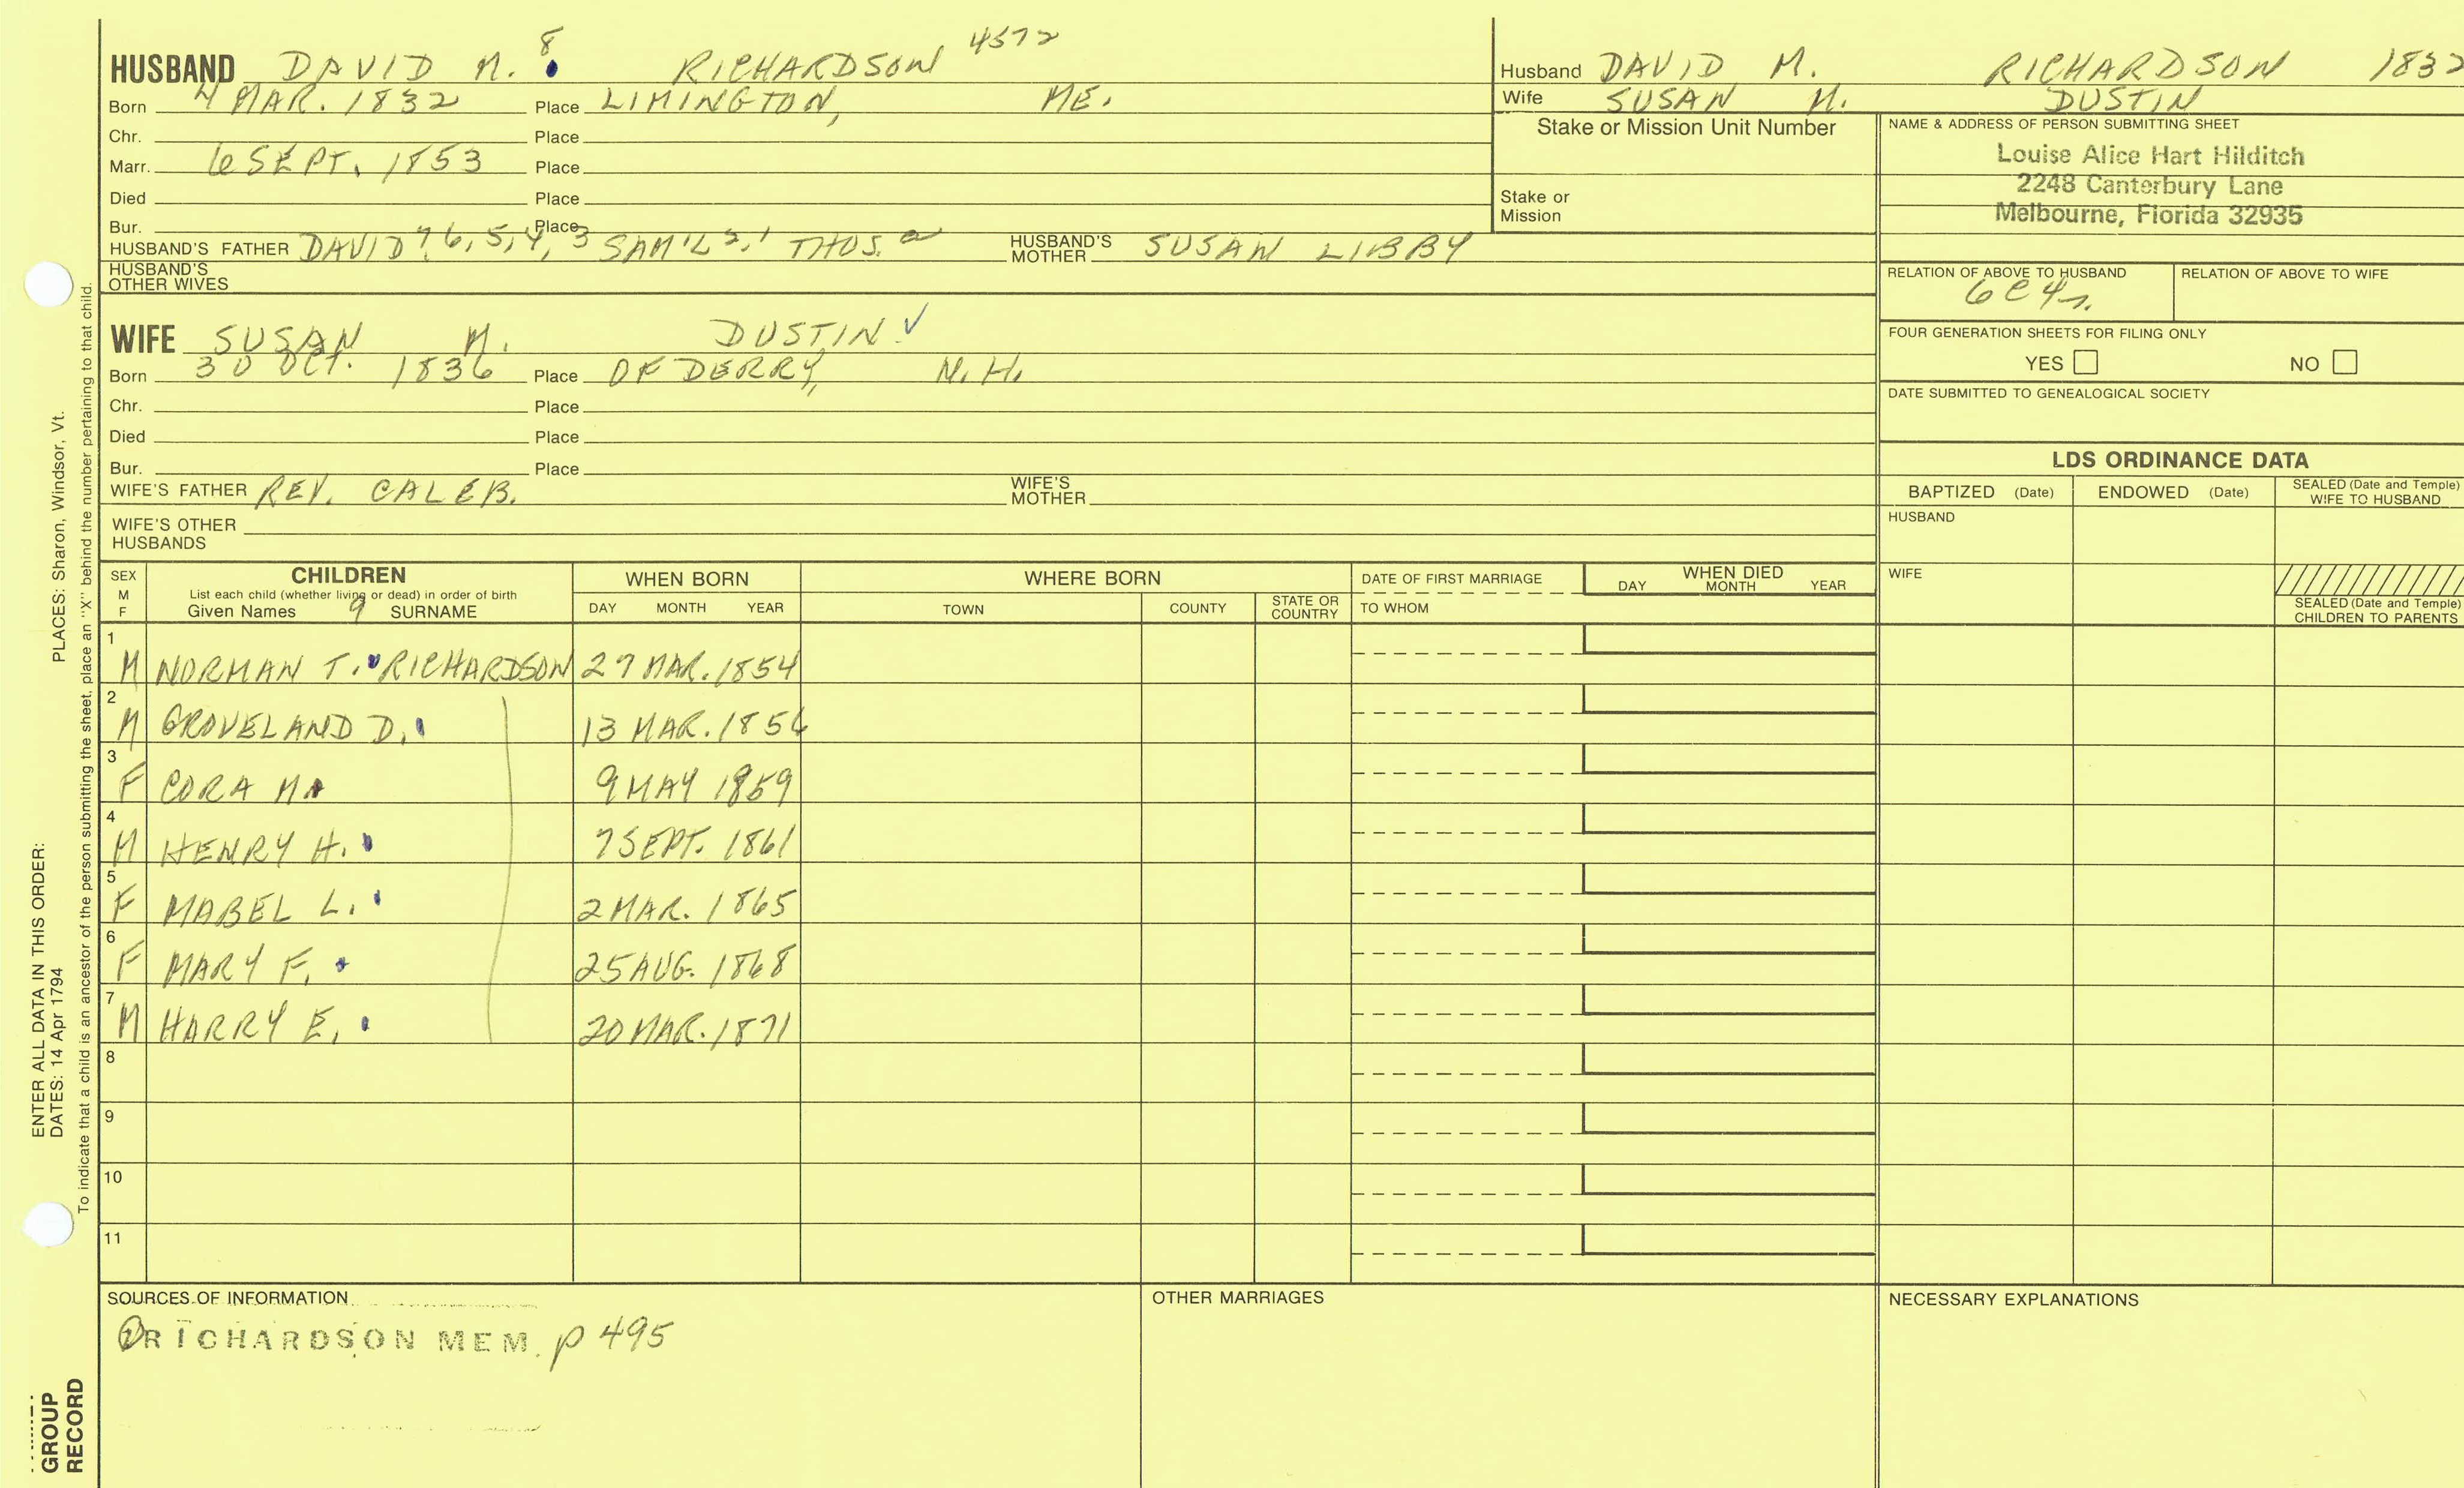 HUSBAND DAVID M. 8 RICHARDSON 4572
Born 4 MAR. 1832 Place LIMINGTON, ME.
Chr. Place
Marr. 6 SEPT. 1853 Place
Died Place
Bur. Place
HUSBAND'S FATHER DAVID 7, 6, 5, 4, 3 SAM'L 2, 1 THOS. HUSBAND'S MOTHER SUSAN LIBBY
HUSBAND'S OTHER WIVES
WIFE SUSAN M. DUSTIN ✓
Born 30 OCT. 1836 Place OF DERRY, N.H.
Chr. Place
Died Place
Bur. Place
WIFE'S FATHER REV. CALEB. WIFE'S MOTHER
WIFE'S OTHER HUSBANDS
Husband DAVID M. RICHARDSON 1832
Wife SUSAN M. DUSTIN
Stake or Mission Unit Number
Stake or Mission
NAME & ADDRESS OF PERSON SUBMITTING SHEET
Louise Alice Hart Hilditch
2248 Canterbury Lane
Melbourne, Florida 32935
RELATION OF ABOVE TO HUSBAND RELATION OF ABOVE TO WIFE
6C4r.
FOUR GENERATION SHEETS FOR FILING ONLY
YES NO
DATE SUBMITTED TO GENEALOGICAL SOCIETY
LDS ORDINANCE DATA
BAPTIZED (Date) ENDOWED (Date) SEALED (Date and Temple) WIFE TO HUSBAND
HUSBAND
WIFE
SEALED (Date and Temple) CHILDREN TO PARENTS
SEX M F
CHILDREN
List each child (whether living or dead) in order of birth
Given Names 9 SURNAME
WHEN BORN
DAY MONTH YEAR
WHERE BORN
TOWN COUNTY STATE OR COUNTRY
DATE OF FIRST MARRIAGE
TO WHOM
WHEN DIED
DAY MONTH YEAR
1 M NORMAN T. RICHARDSON 27 MAR. 1854
2 M GROVELAND D. 13 MAR. 1856
3 F CORA M. 9 MAY 1859
4 M HENRY H. 7 SEPT. 1861
5 F MABEL L. 2 MAR. 1865
6 F MARY F. 25 AUG. 1868
7 M HARRY E. 20 MAR. 1871
8
9
10
11
SOURCES OF INFORMATION
① RICHARDSON MEM. p 495
OTHER MARRIAGES
NECESSARY EXPLANATIONS
ENTER ALL DATA IN THIS ORDER:
DATES: 14 Apr 1794 PLACES: Sharon, Windsor, Vt.
To indicate that a child is an ancestor of the person submitting the sheet, place an "X" behind the number pertaining to that child.
GROUP
RECORD